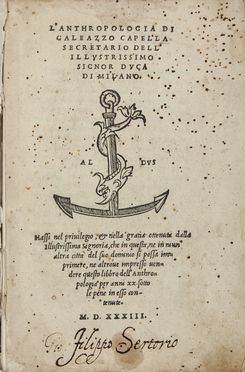 L'ANTHROPOLOGIA DI
GALEAZZO CAPELLA
SECRETARIO DELL'
ILLVSTRISSIMO
SIGNOR DVCA
DI MILANO.
AL DVS
Hassi nel priuilegio, & nella gratia ottenuta dalla
Illustrissima Signoria, che in questa, ne in niun'
altra città del suo dominio si possa im=
primere, ne altroue impresso uen=
dere questo libbro dell'Anthro=
pologia per anni xx. sotto
le pene in esso con=
tenute.
M. D. XXXIII.
Filippo Sertorio